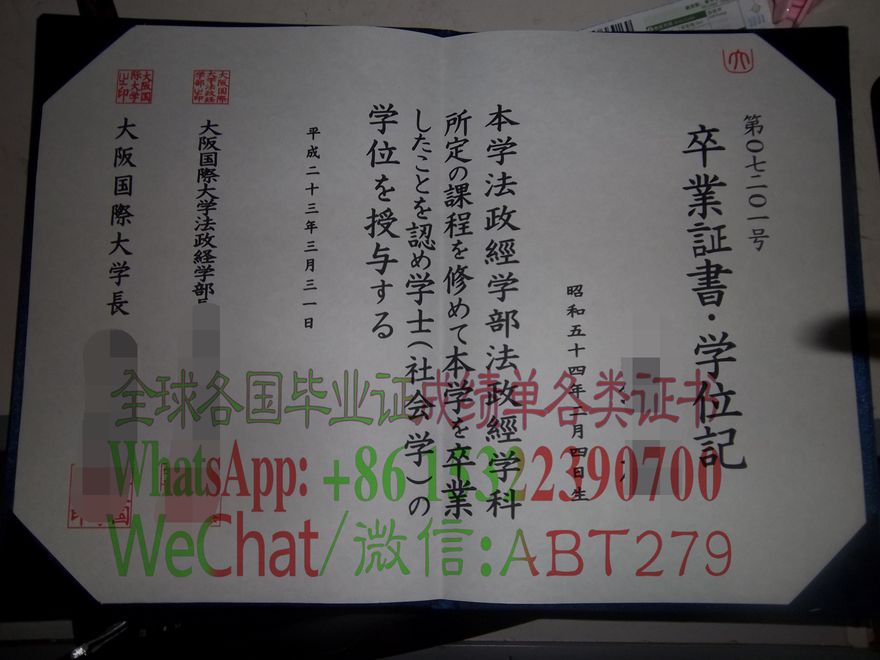 第〇七二〇一号
卒業証書・学位記
昭和五十四年二月四日生
本学法政經学部法政經学科
所定の課程を修めて本学を卒業
したことを認め学士(社会学)の
学位を授与する
平成二十三年三月三一日
大阪国際大学法政経学部長
大阪国際大学長
大阪国際大学之印
全球各国毕业证成绩单各类证书
WhatsApp: +86 15322390700
WeChat/微信:ABT279